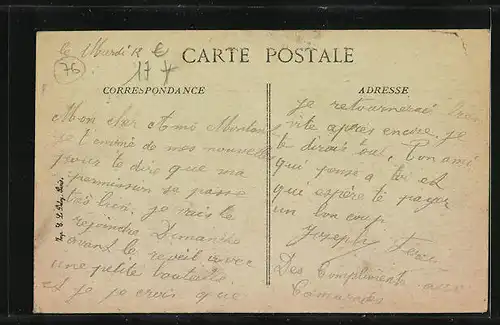 le Mardi 12
76
17
CARTE POSTALE
CORRESPONDANCE
ADRESSE
Mon cher Ami
je t'envoie de mes nouvelles
pour te dire que ma
permission se passe
très bien. je vais te
rejoindre Dimanche
avant le reveil avec
une petite bouteille
et je je crois que
je retournerai bien
vite apres encore je
te dirais tout, Ton ami
qui pense a toi et
qui espère te payer
un bon coup
Joseph
Des Compliments aux
Camarades
Imp. E. L.